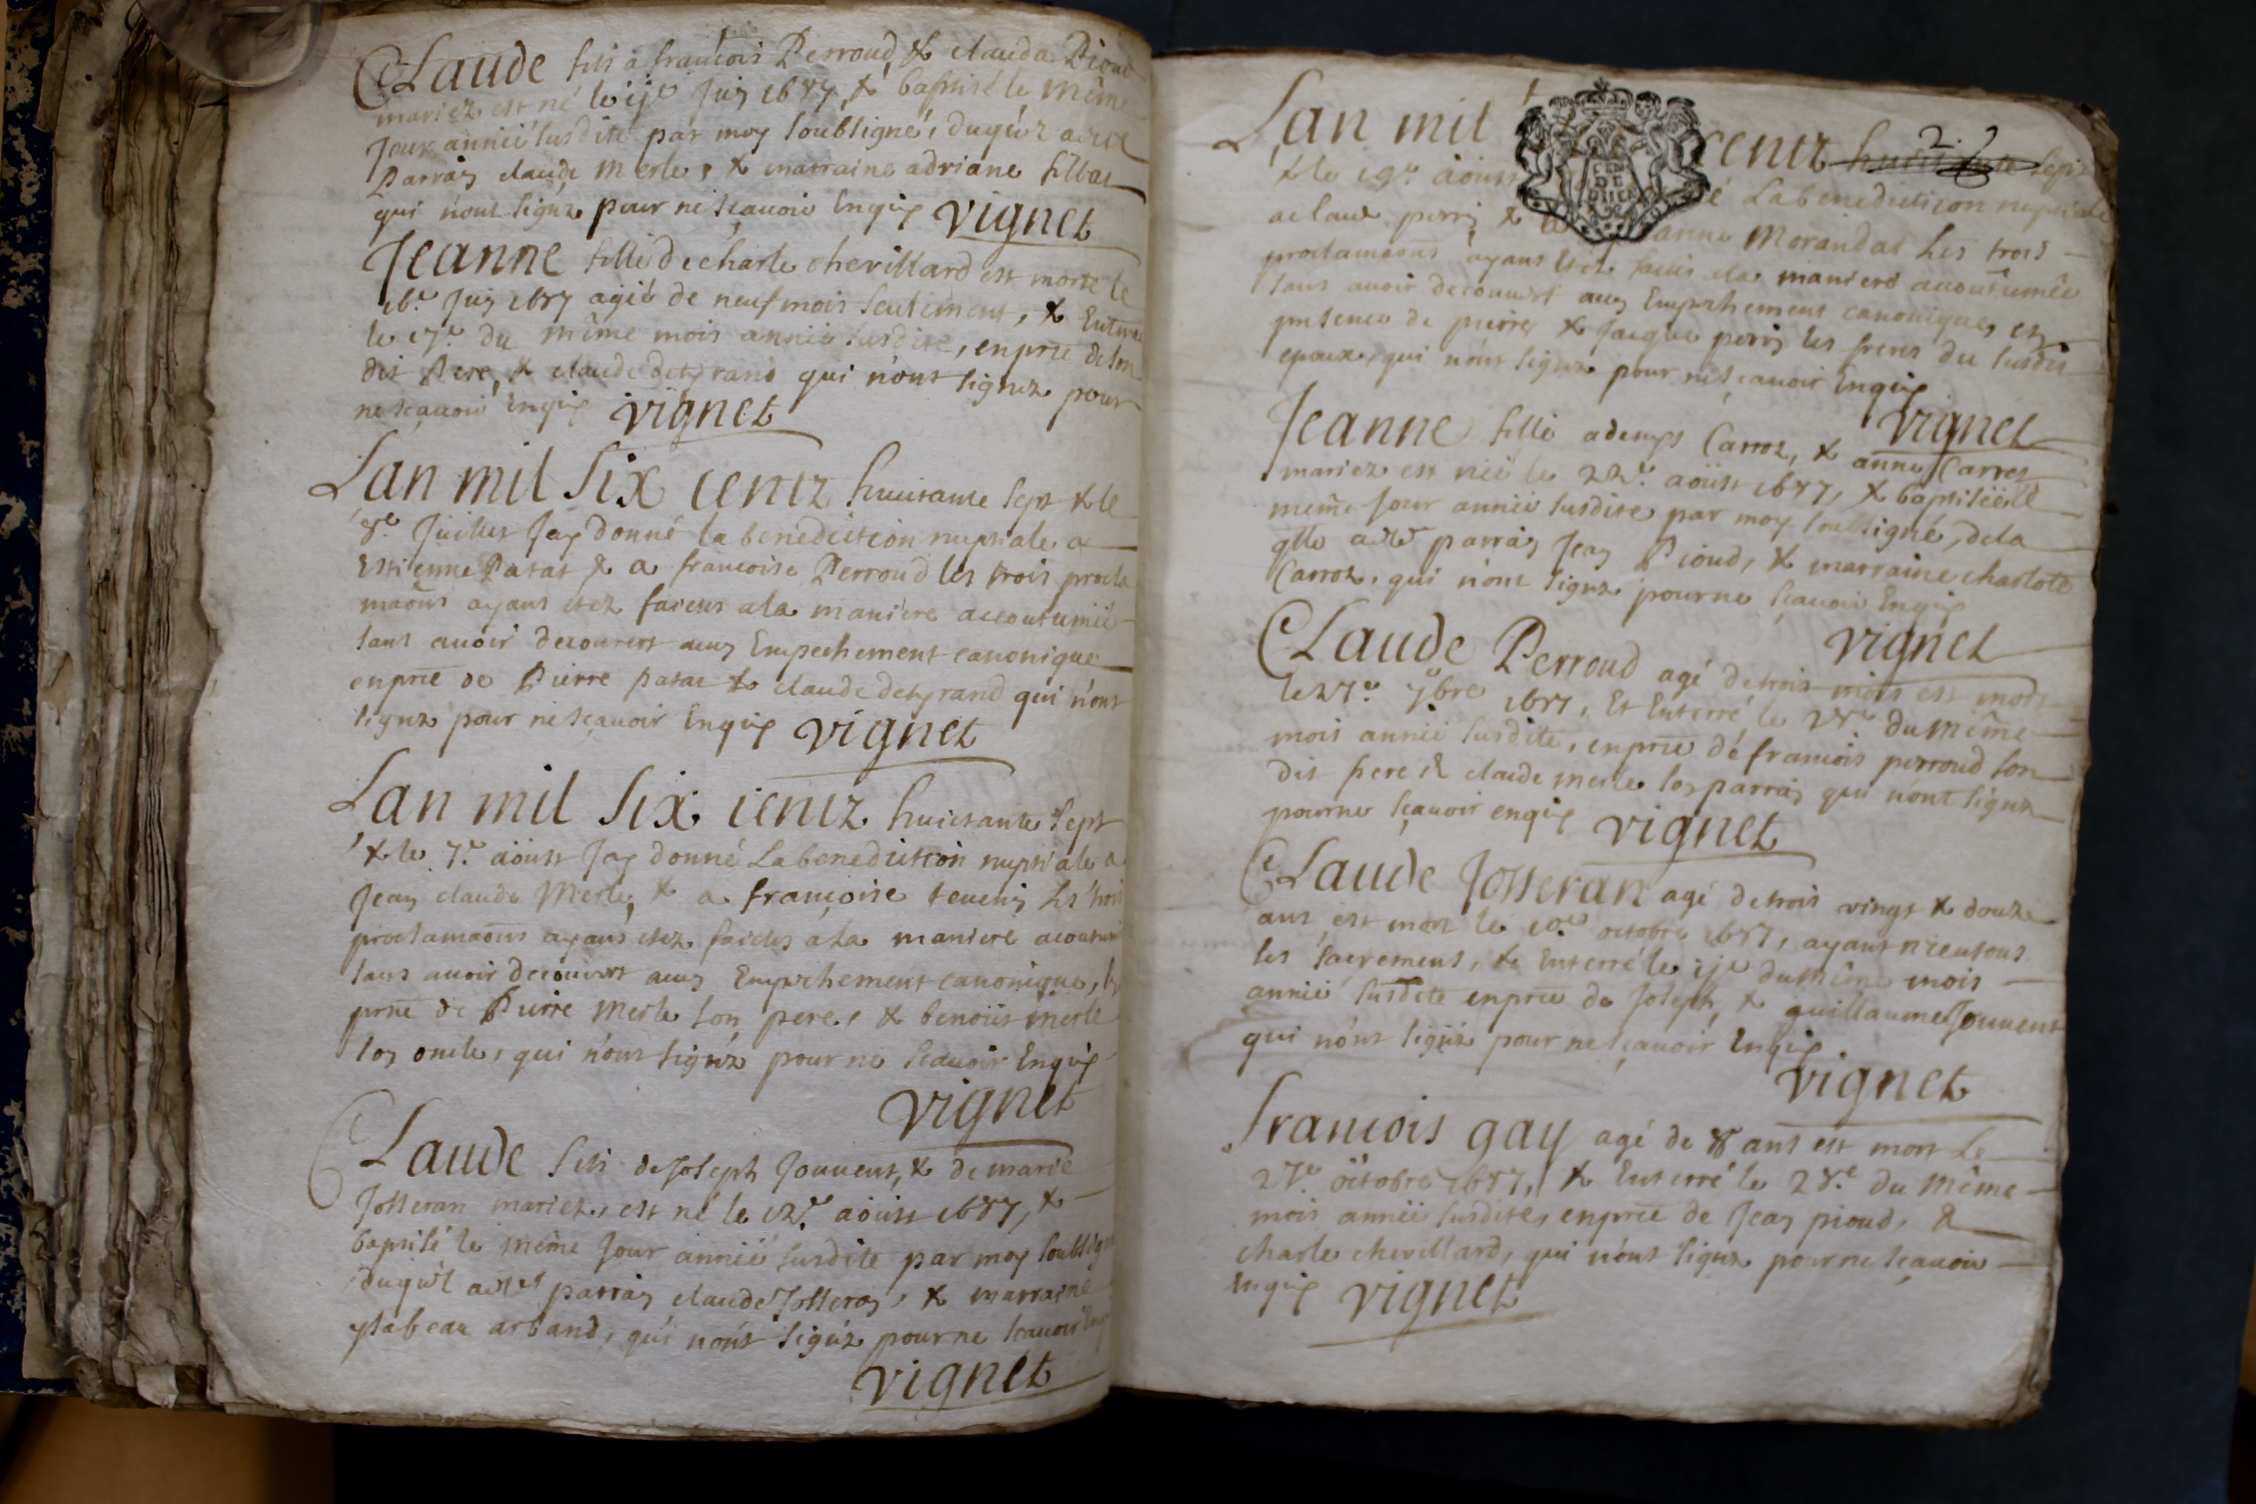 Claude fils à francois Perroud & clauda Pioud
mariez est né le ije Juin 1687, & baptisé le même
Jour année susdite par moy soubsigné, duquel a esté
Parrain claude Merle, & marraine adriane
qui n'ont signez pour ne sçavoir Enquis Vignet
Jeanne fille de charle chevillard est morte le
16e Juin 1687 agée de neuf mois seulement, & Enterrée
le 17e du même mois année susdite, en pnce de son
dit Pere, & claude detgrand qui n'ont signez pour
ne sçavoir Enquis Vignet
Lan mil six centz huictante sept & le
8e Juillet Jay donné la benediction nuptiale a
Estienne Patat & a francoise Perroud les trois procla
maõns ayans estez faictes a la maniere accoutumée
sans avoir decouvert aucun Empechement canonique
en pnce de Pierre patat & claude detgrand qui n'ont
signez pour ne sçavoir Enquis Vignet
Lan mil six centz huictante sept
& le 7e aoust Jay donné La benediction nuptiale a
Jean claude Merle, & a françoise tevenin les trois
proclamaõns ayans estez faictes a la maniere acoutum
sans avoir decouvert aucun Empechement canonique,
pnce de Pierre Merle son pere, & benoist Merle
son oncle, qui n'ont signéz pour ne scavoir Enquis
Vignet
Claude fils de Joseph Jouvent, & de marie
Josseran mariez, est né le 12e aoust 1687, &
baptisé le même Jour année susdite par moy soubsigné
duquel a esté parrain claude Josseran, & marraine
ysabeau arband, qui n'ont signéz pour ne scavoir Enq
Vignet
2.
Lan mil centz sept
& le 19e aoust La benediction nuptiale
a claude perrin & a anne Morandat Les trois
proclamaõns ayans estez faites a la maniere acoutumée
sans avoir decouvert aucun Empechement canonique, en
presence de pierre & Jacque perrin les freres du susdit
epoux, qui n'ont signez pour ne sçavoir Enquis
Vignet
Jeanne fille a Carroz, & anne Carroz
mariez est née le 22e aoust 1687, & baptisée le
même Jour année susdite par moy soubsigné, de la
qlle a esté parrain Jean Pioud, & marraine charlote
Carroz, qui n'ont signez pour ne sçavoir Enquis
Vignet
Claude Perroud agé de trois mois est mort
le 27e 7bre 1687, Et Enterré le 28e du même
mois année susdite, en pnce de francois perroud son
dit Pere & claude Merle son parrain qui n'ont signez
pour ne sçavoir enquis Vignet
Claude Josseran agé de trois vingt & douze
ans, est mort le 10e octobre 1687, ayant receu tous
les sacremens, & Enterré le ije du même mois
année susdite en pnce de Joseph, & guillaume Jouvent
qui n'ont signéz pour ne sçavoir Enquis
Vignet
Francois gay agé de 8 ans est mort Le
27e octobre 1687, & Enterré le 28e du même
mois année susdite, en pnce de Jean pioud, &
charle chevillard, qui n'ont signez pour ne sçavoir
Enquis Vignet